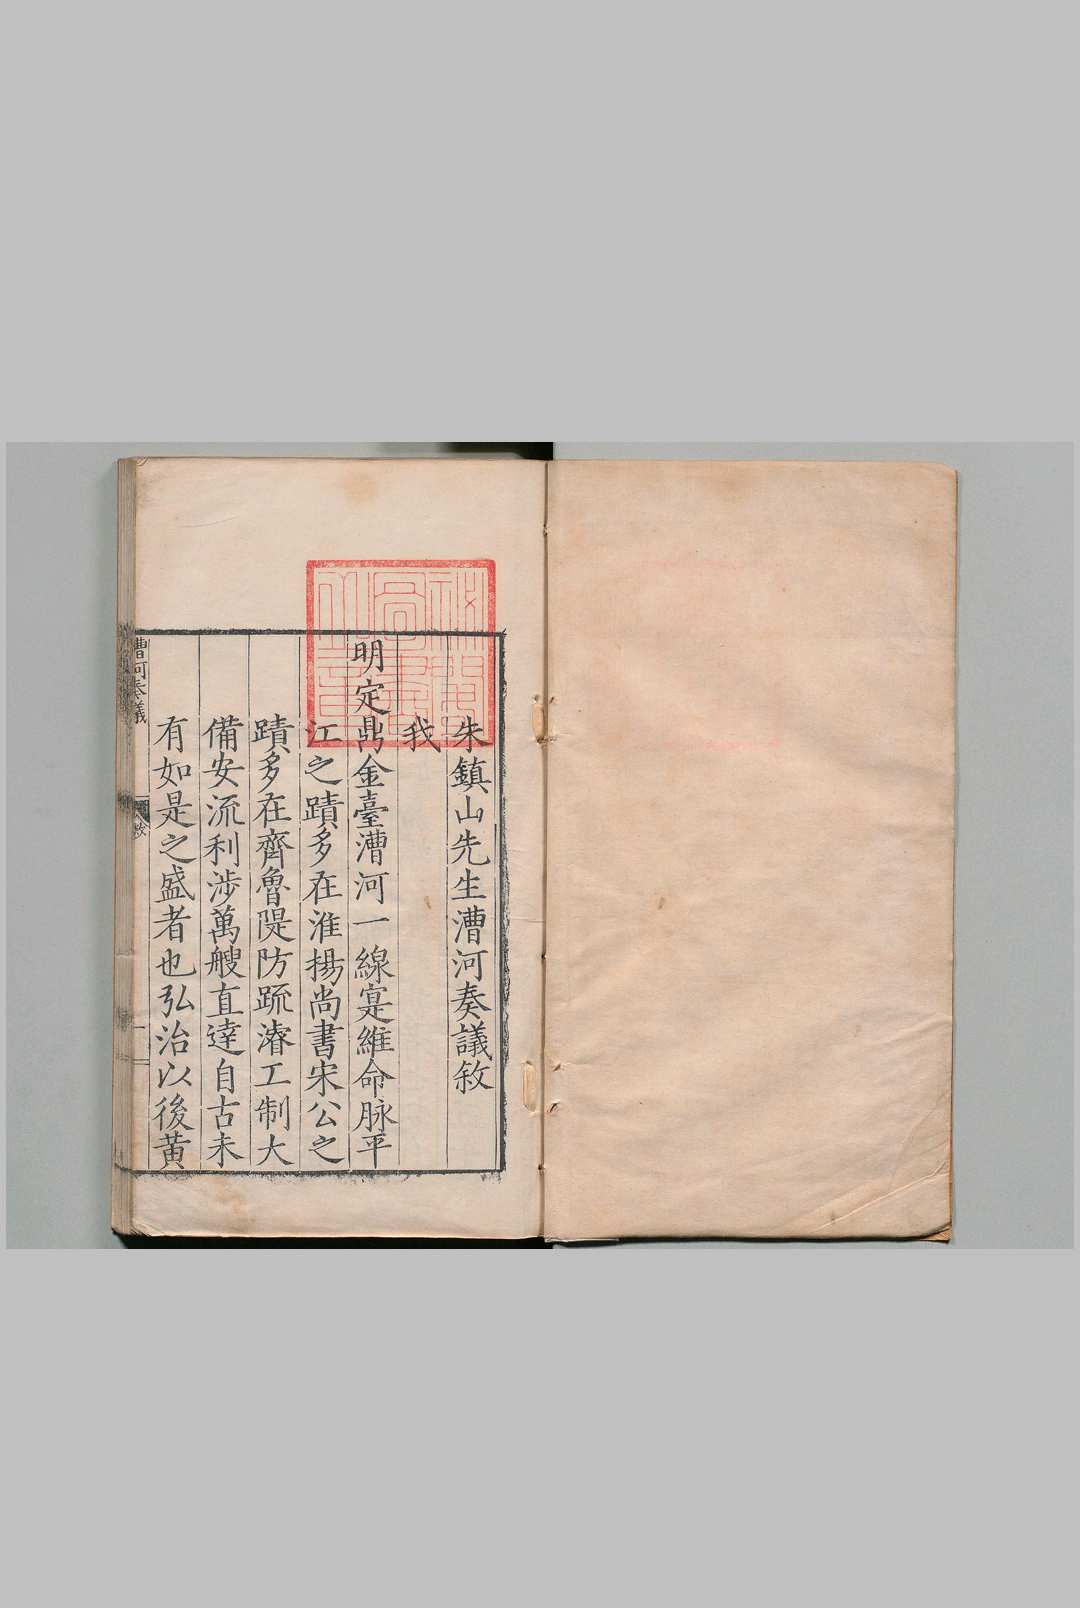 朱鎮山先生漕河奏議敘
我
明定鼎金臺漕河一線寔維命脉平
江之蹟多在淮揚尚書宋公之
蹟多在齊魯隄防䟽濬工制大
備安流利涉萬艘直達自古未
有如是之盛者也弘治以後黃
漕河奏議
敘